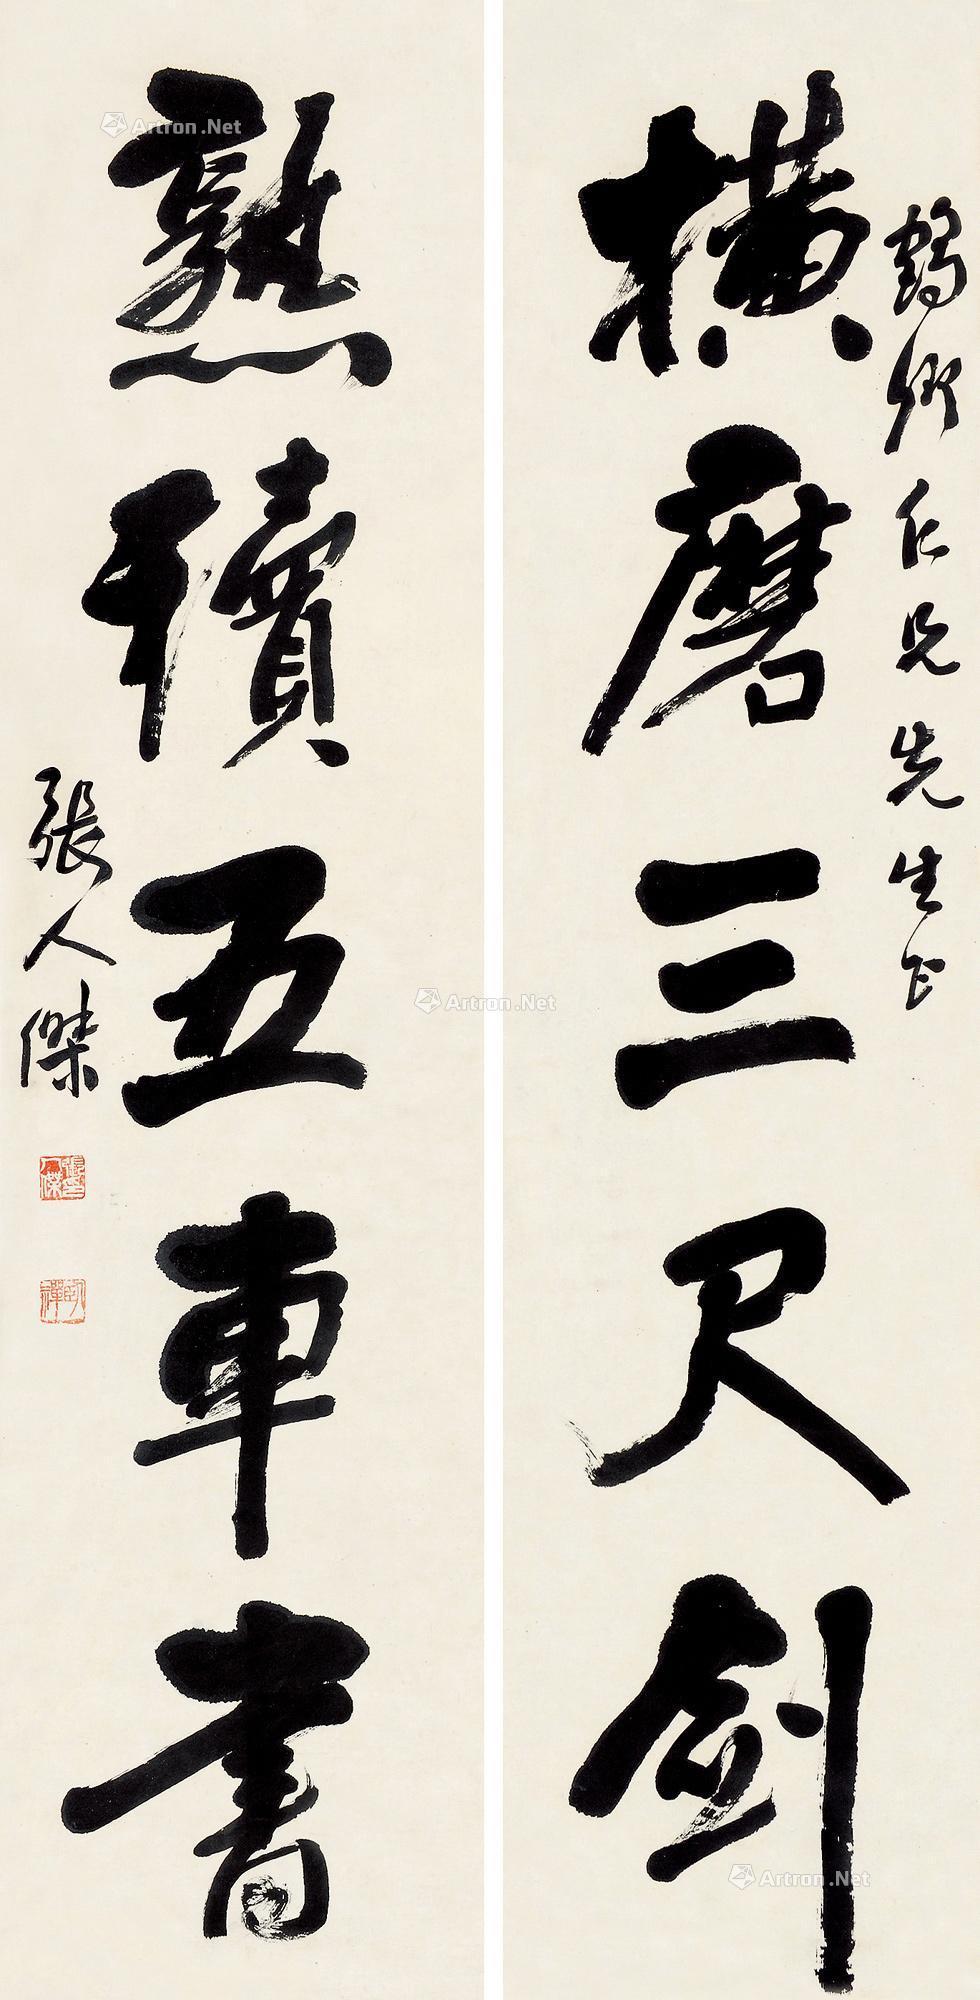 鶴卿仁兄先生正
橫磨三尺劍
熟讀五車書
張人傑
Artron.Net
Artron.Net
Artron.Net